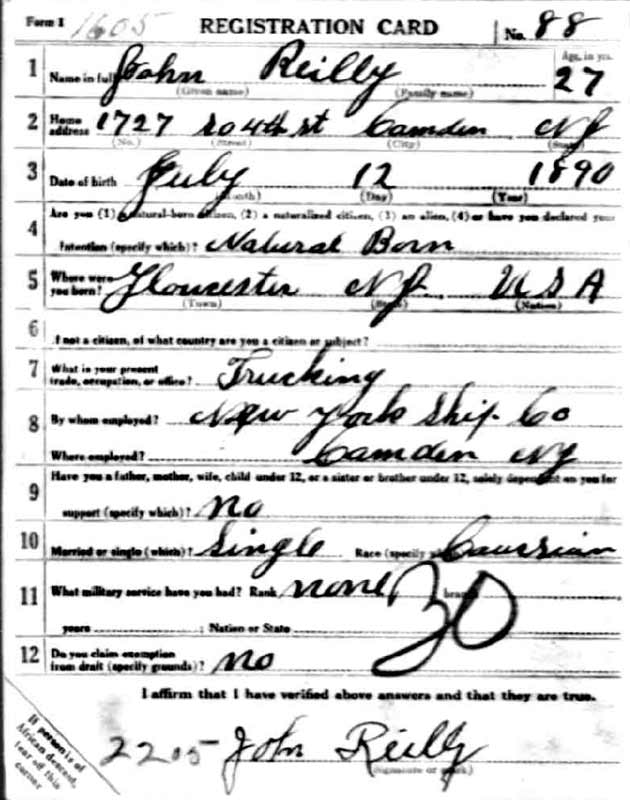 Form 1 1605 REGISTRATION CARD No. 88
1 Name in full John Reilly Age, in yrs. 27
(Given name) (Family name)
2 Home address 1727 So 4th st Camden NJ
(No.) (Street) (City) (State)
3 Date of birth July 12 1890
(Month) (Day) (Year)
4 Are you (1) a natural-born citizen, (2) a naturalized citizen, (3) an alien, (4) or have you declared your
intention (specify which)? Natural Born
5 Where were you born? Gloucester NJ. U S A
(Town) (State) (Nation)
6 If not a citizen, of what country are you a citizen or subject?
7 What is your present trade, occupation, or office? Trucking
8 By whom employed? New York Ship. Co
Where employed? Camden NJ
9 Have you a father, mother, wife, child under 12, or a sister or brother under 12, solely dependent on you for
support (specify which)? No
10 Married or single (which)? Single Race (specify which)? Caussian
11 What military service have you had? Rank none branch 30
years ; Nation or State
12 Do you claim exemption from draft (specify grounds)? No
I affirm that I have verified above answers and that they are true.
2205 John Reilly
(Signature or mark)
If person is of
African descent,
tear off this
corner